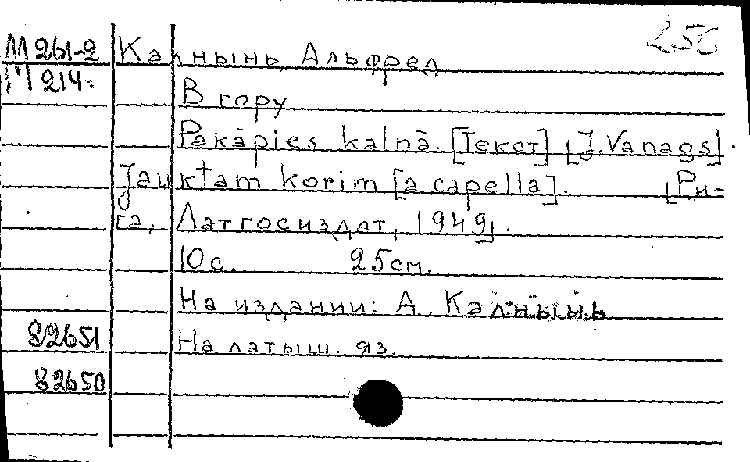 256
М 261-2 Калнынь, Альфред
М 214.
В гору
Pakāpies kalnā. [Текст] [J. Vanags].
Jauktam korim [a capella]. [Ри-
га, Латгосиздат, 1949].
10 с. 25 см.
На издании: А. Калнынь
82651 На латыш. яз.
82650